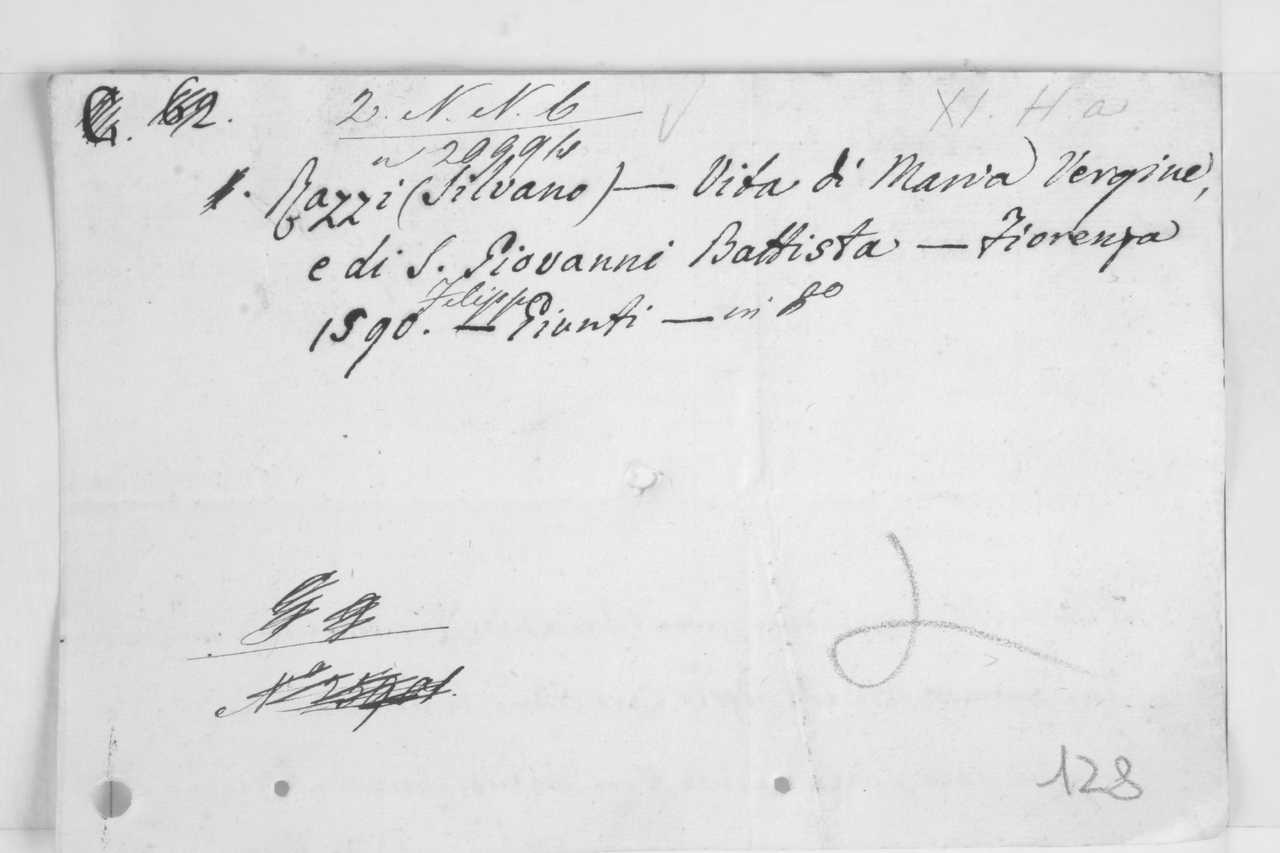 C. 62.
2. N. N. b
XI. H. a
n 29994
1. Razzi (Silvano) — Vita di Maria Vergine,
e di S. Giovanni Battista — Fiorenza
1590. — Filippo Giunti — in 8o
G g
No
128